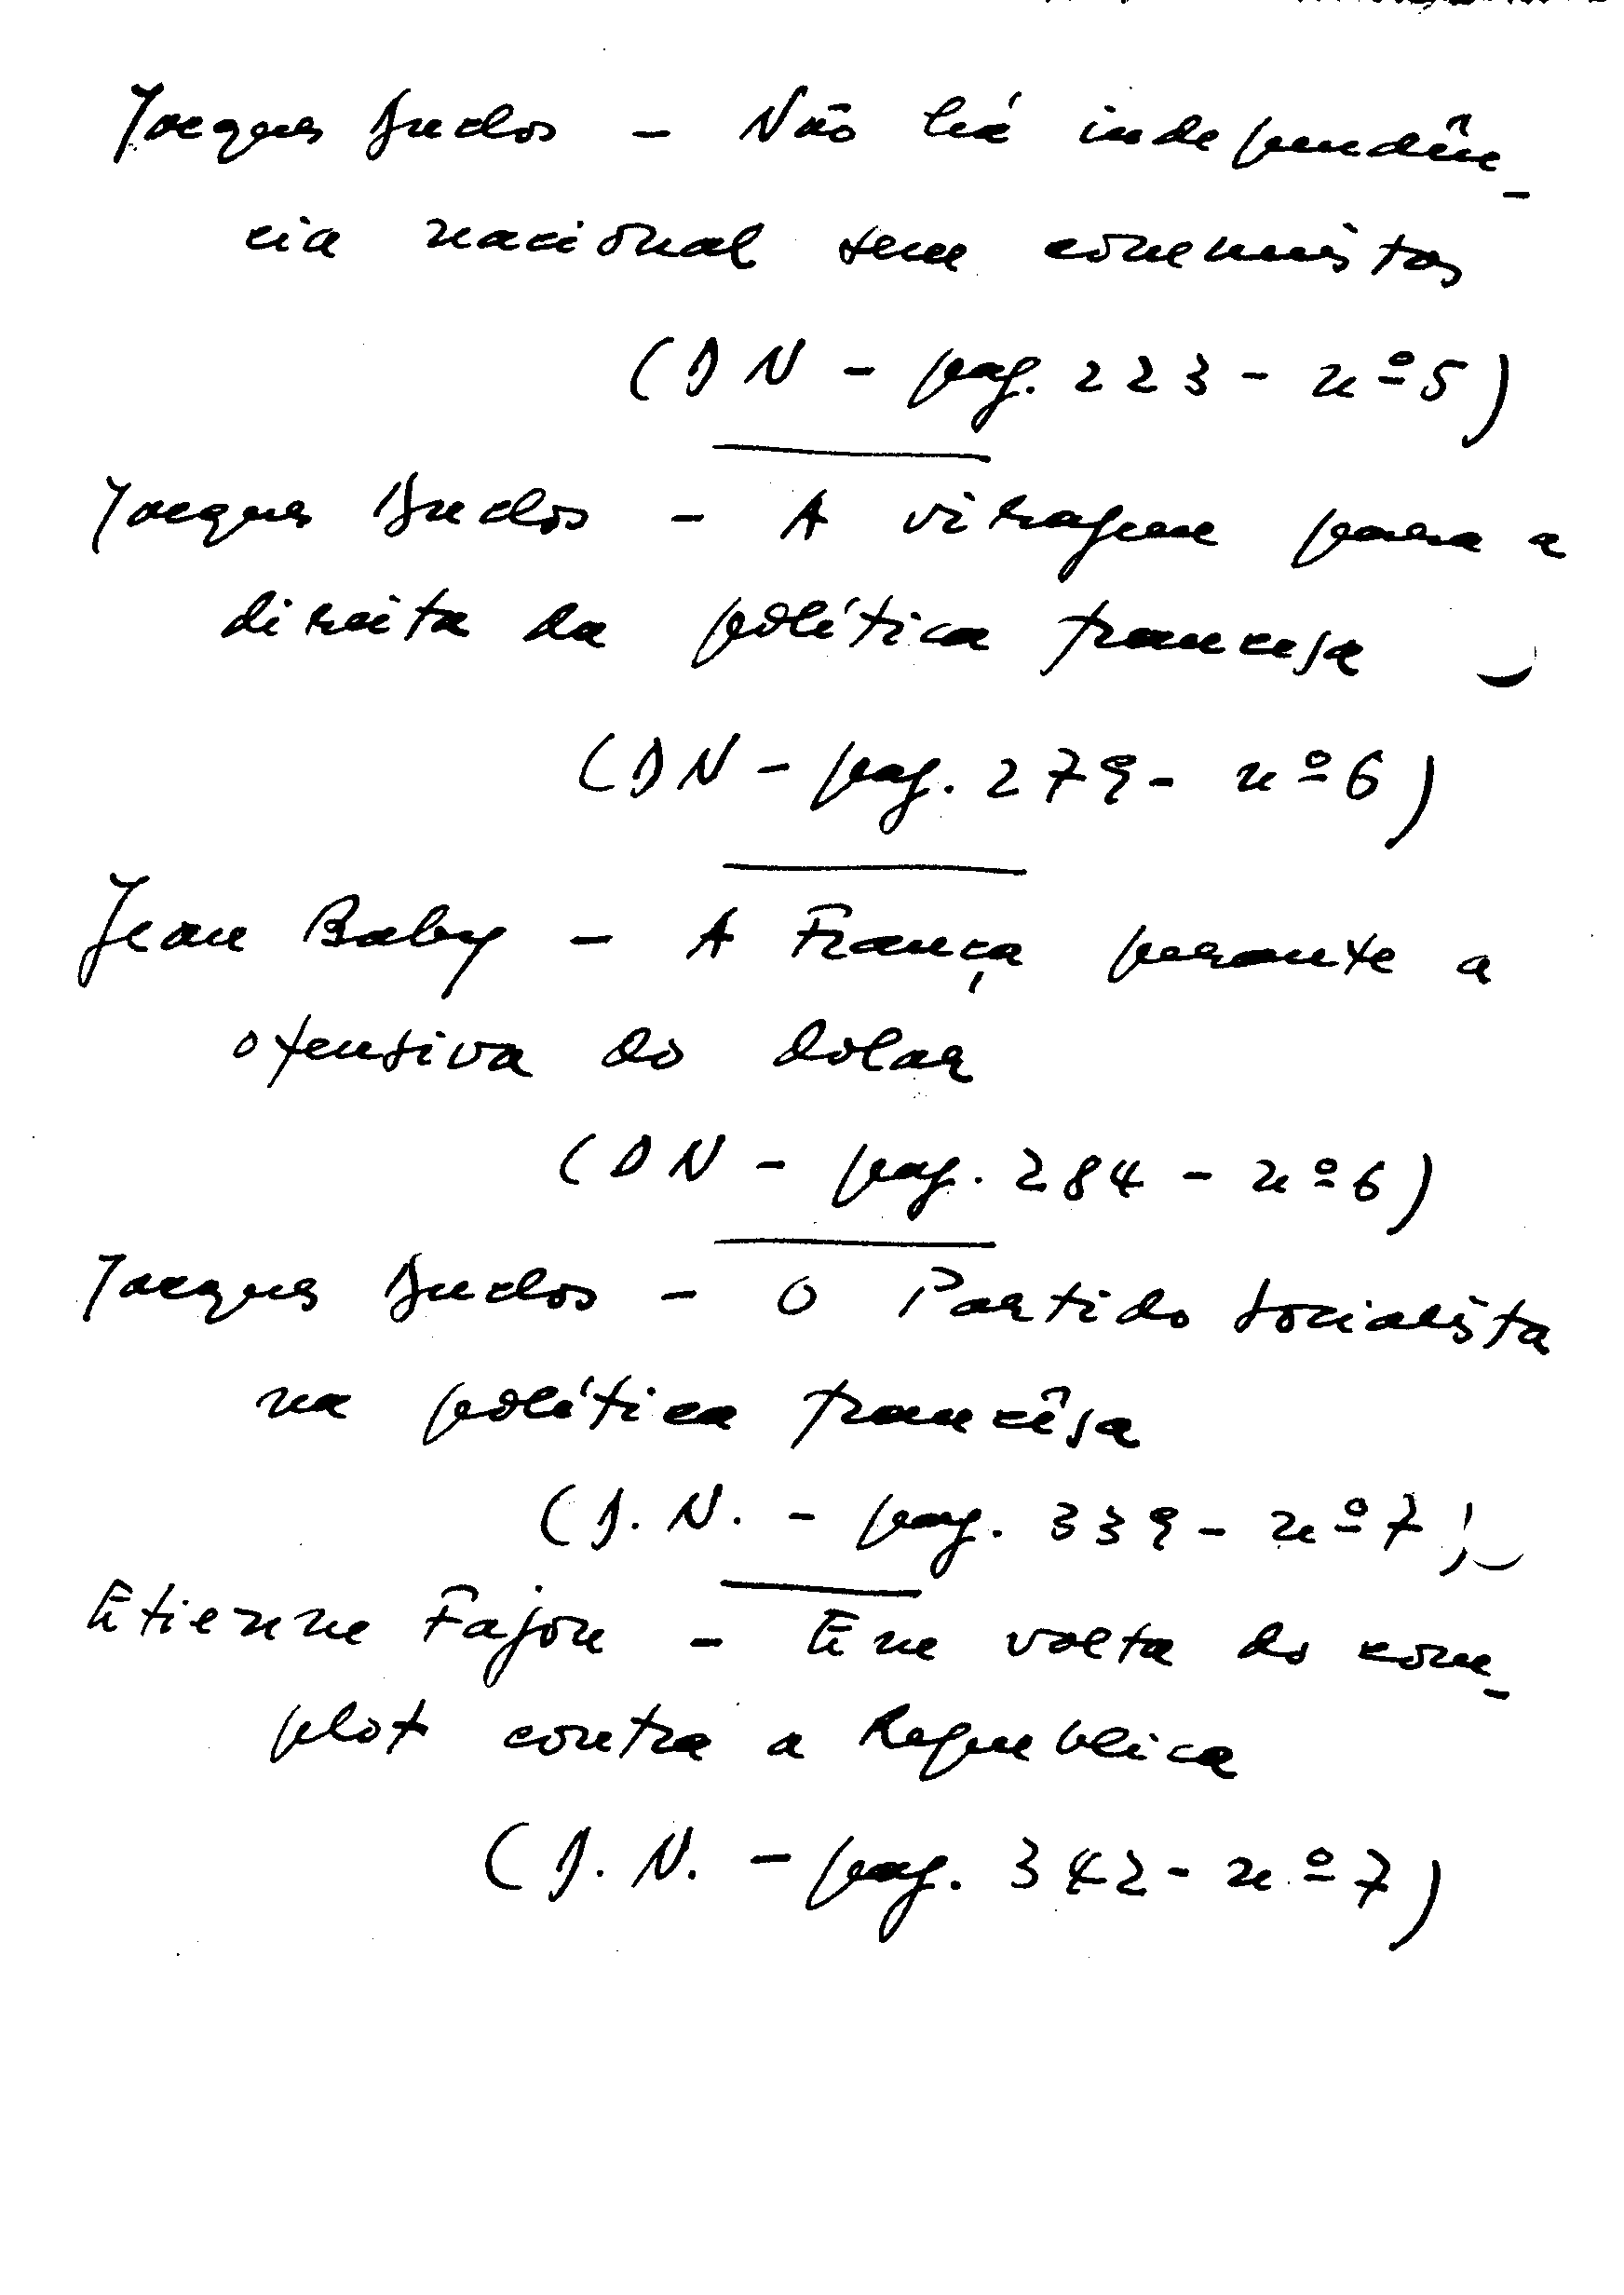 Jacques Duclos - Não há independên-
cia nacional sem comunistas
(DN - pag. 223 - nº 5)
Jacques Duclos - A viragem para a
direita da política francesa
(DN - pag. 279 - nº 6)
Jean Baby - A França perante a
ofensiva do dolar
(DN - pag. 284 - nº 6)
Jacques Duclos - O Partido Socialista
na política francêsa
(D.N. - pag. 339 - nº 7)
Etienne Fajon - Em volta do com-
plot contra a Republica
(D.N. - pag. 342 - nº 7)